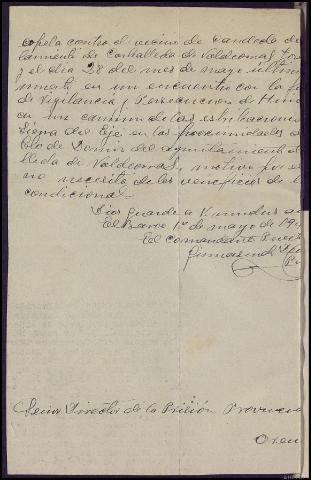 copela contra el vecino de Candeda del
tamiento de Carballeda de Valdeorras Jo
y el dia 28 del mes de mayo ultimo
muerto en un encuentro con la fu
de Vigilancia y Persecucion de Huid
en un camino de las estribaciones
Sierra del Eje en las proximidades
blo de Domiz del ayuntamiento
lleda de Valdeorras, motivo por el
no necesita de los veneficios de l
condicional.
Dios guarde a V. muchos an
El Barco 1º de mayo de 19
El Comandante Pues
Gumersindo
Señor Director de la Prisión Provincia
Oren